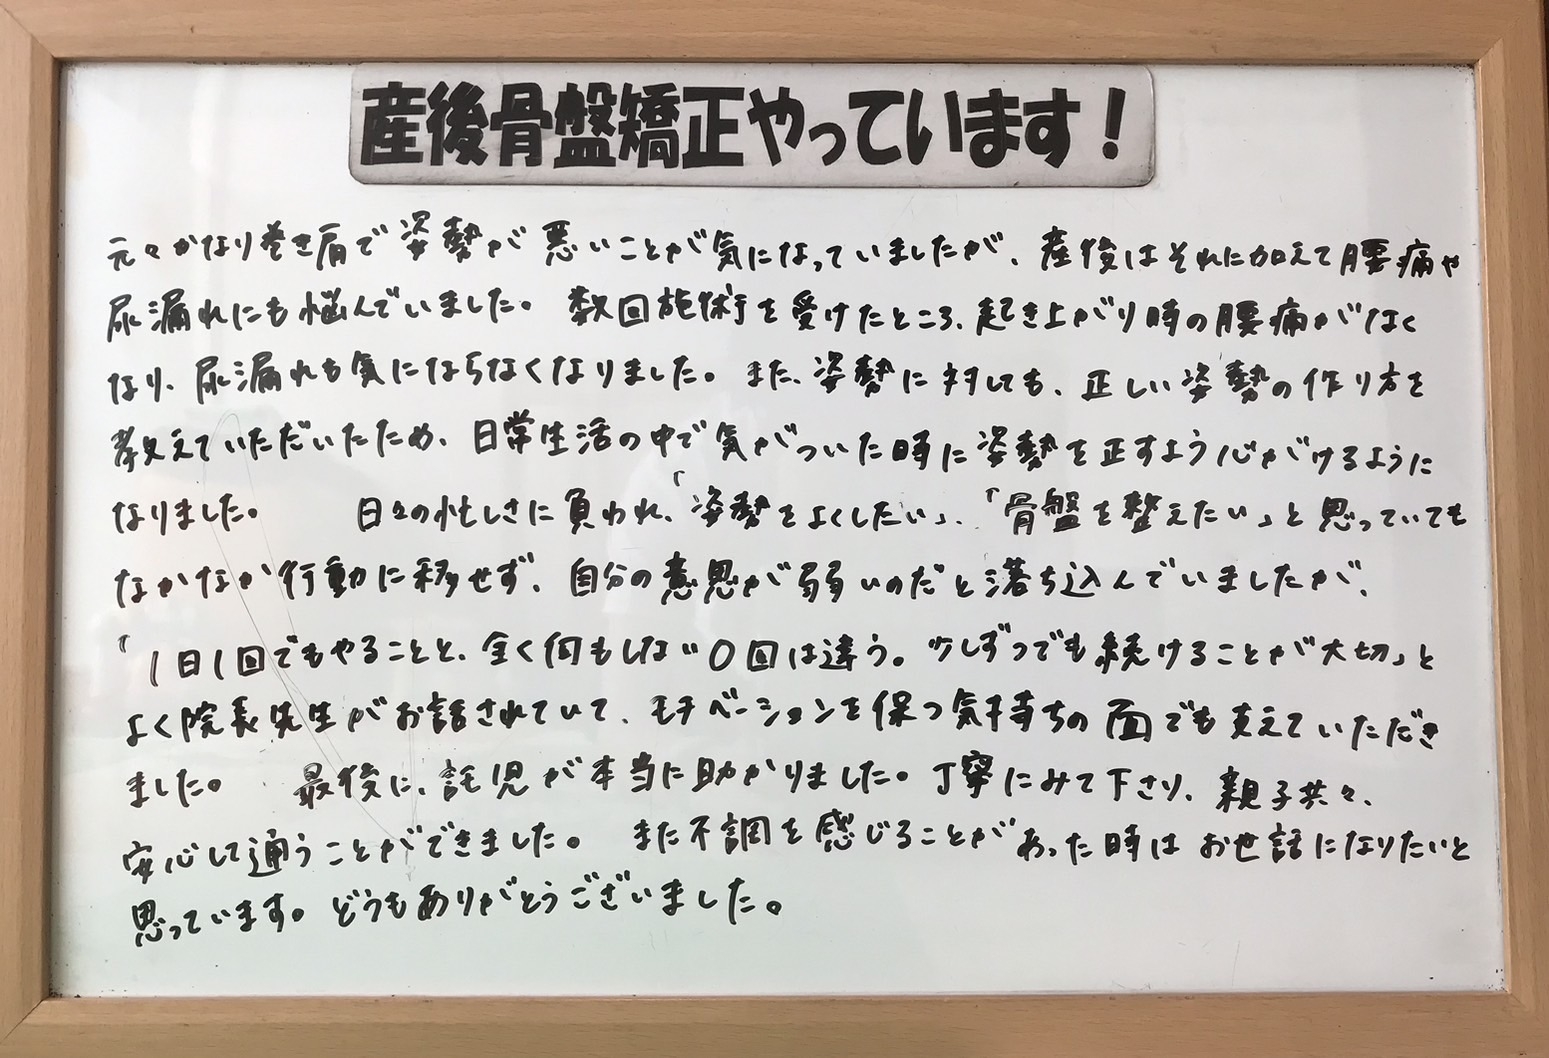 産後骨盤矯正やっています!
元々かなり巻き肩で姿勢が悪いことが気になっていましたが、産後はそれに加えて腰痛や
尿漏れにも悩んでいました。数回施術を受けたところ、起き上がり時の腰痛がなく
なり、尿漏れも気にならなくなりました。また、姿勢に対しても、正しい姿勢の作り方を
教えていただいたため、日常生活の中で気がついた時に姿勢を正すよう心がけるように
なりました。 日々の忙しさに負われ、「姿勢をよくしたい」、「骨盤を整えたい」と思っていても
なかなか行動に移せず、自分の意思が弱いのだと落ち込んでいましたが、
「1日1回でもやることと、全く何もしない0回は違う。少しずつでも続けることが大切」と
よく院長先生がお話されていて、モチベーションを保つ気持ちの面でも支えていただき
ました。 最後に、託児が本当に助かりました。丁寧にみて下さり、親子共々、
安心して通うことができました。 また不調を感じることがあった時はお世話になりたいと
思っています。どうもありがとうございました。